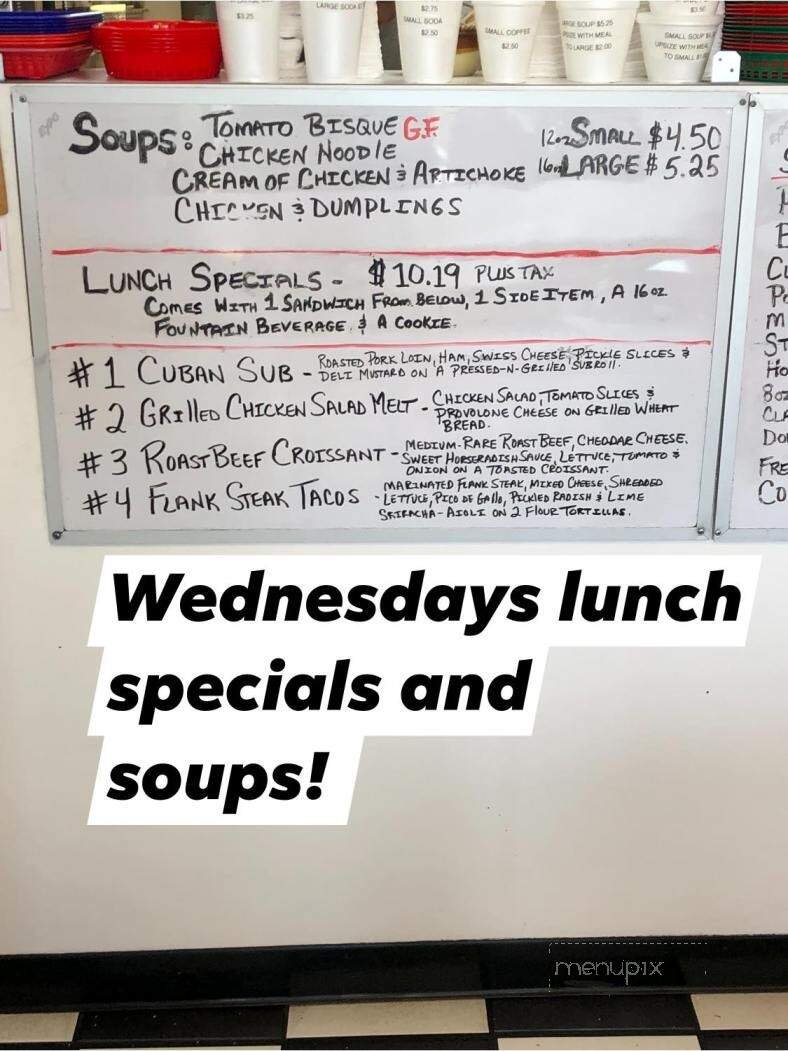 $3.25
LARGE SODA
$2.75
SMALL SODA
$2.50
SMALL COFFEE
$2.50
LARGE SOUP $5.25
UPSIZE WITH MEAL
TO LARGE $2.00
$3.50
SMALL SOUP
UPSIZE WITH MEAL
TO SMALL
Soups: TOMATO BISQUE G.F.
CHICKEN NOODLE
CREAM OF CHICKEN & ARTICHOKE
CHICKEN & DUMPLINGS
12oz SMALL $4.50
16oz LARGE $5.25
LUNCH SPECIALS - $10.19 PLUS TAX
COMES WITH 1 SANDWICH FROM BELOW, 1 SIDE ITEM, A 16 oz
FOUNTAIN BEVERAGE & A COOKIE.
#1 CUBAN SUB - ROASTED PORK LOIN, HAM, SWISS CHEESE, PICKLE SLICES &
DELI MUSTARD ON A PRESSED-N-GRILLED SUBROLL.
#2 GRILLED CHICKEN SALAD MELT - CHICKEN SALAD, TOMATO SLICES &
PROVOLONE CHEESE ON GRILLED WHEAT
BREAD.
#3 ROAST BEEF CROISSANT - MEDIUM-RARE ROAST BEEF, CHEDDAR CHEESE,
SWEET HORSERADISH SAUCE, LETTUCE, TOMATO &
ONION ON A TOASTED CROISSANT.
#4 FLANK STEAK TACOS - MARINATED FLANK STEAK, MIXED CHEESE, SHREDDED
LETTUCE, PICO DE GALLO, PICKLED RADISH & LIME
SRIRACHA-AIOLI ON 2 FLOUR TORTILLAS.
Wednesdays lunch
specials and
soups!
menupix